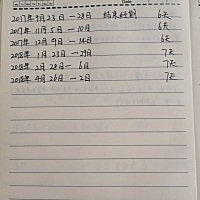 2017年9月23日—28日 结束时刻 6天
2017年11月5日—10日 6天
2017年12月9日—14日 6天
2018年1月23日—29日 7天
2018年2月28日—6日 7天
2018年4月26日—2日 7天